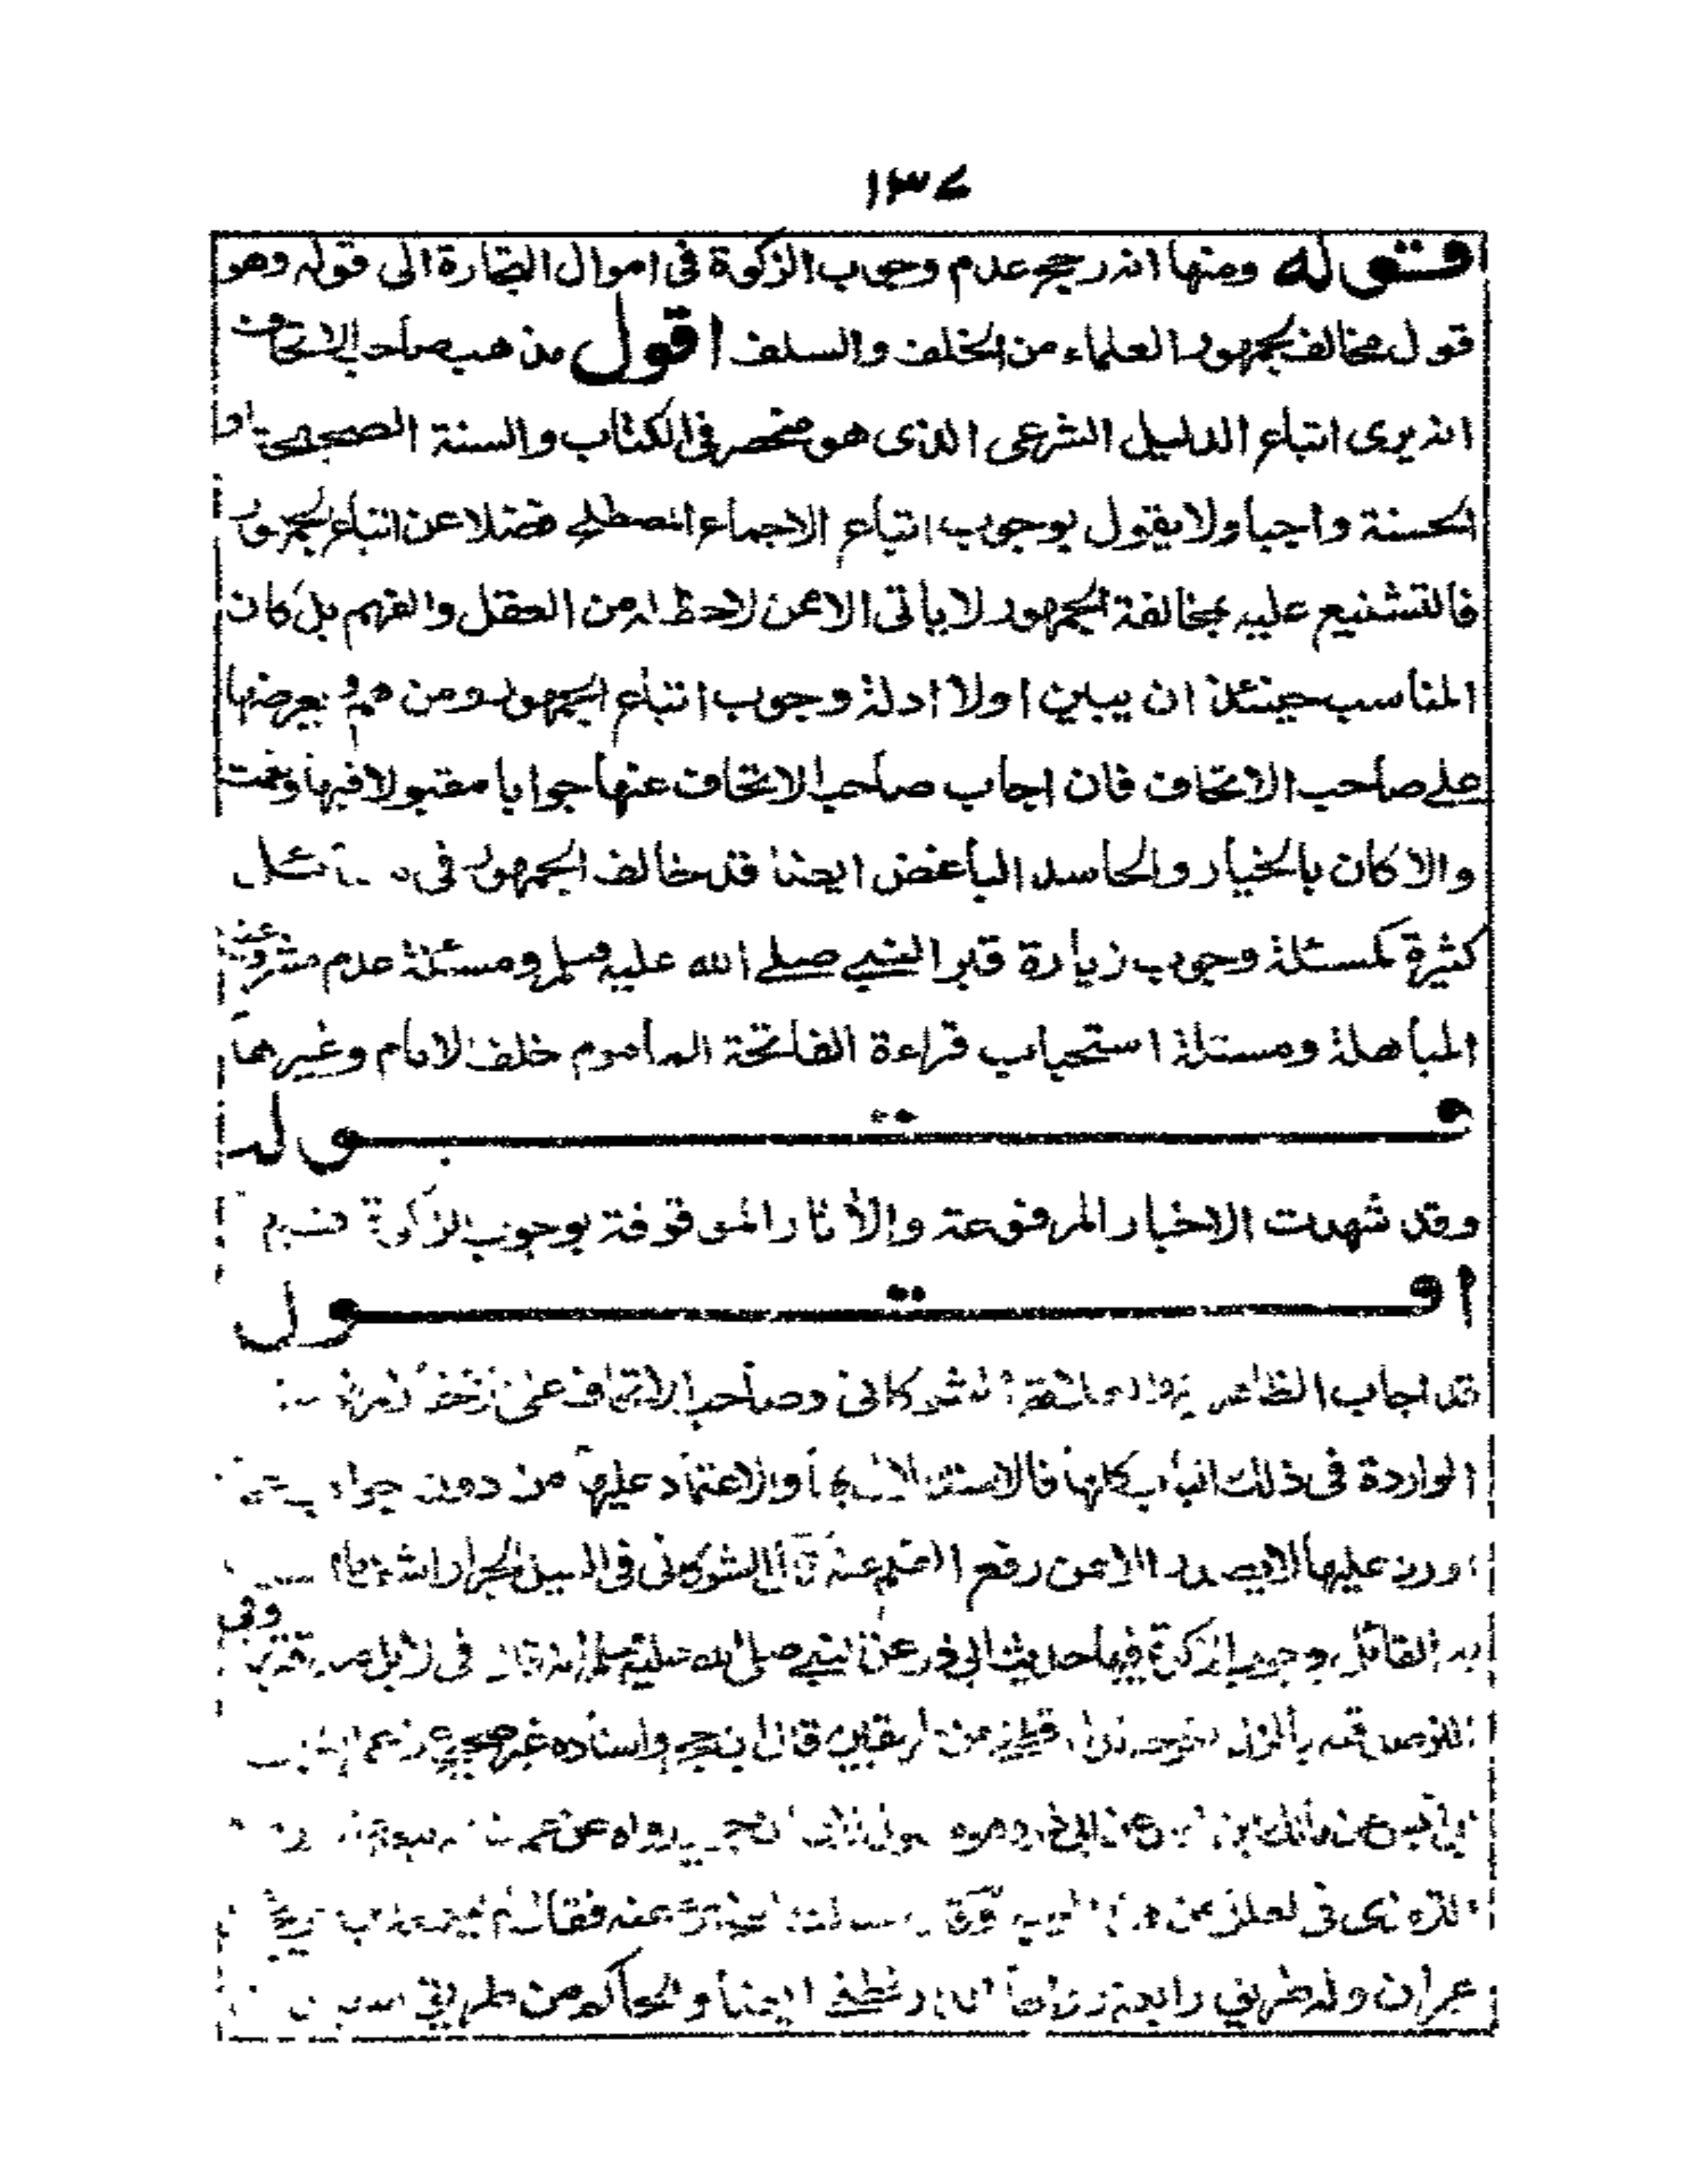 ١٣٤
قوله ومنها انه رجح عدم وجوب الزكوة فى اموال التجارة الى قوله وهو
قول مخالف لجمهور العلماء من الخلف والسلف اقول مذهب صاحب الاتحاف
انه يرى اتباع الدليل الشرعى الذى هو منحصر فى الكتاب والسنة الصحيحة او
الحسنة واجبا ولا يقول بوجوب اتباع الاجماع المصطلح فضلا عن اتباع الجمهور
فالتشنيع عليه بمخالفة الجمهور لا ياتى الا ممن لاحظ له من العقل والفهم بل كان
المناسب حينئذ ان يبين اولا ادلة وجوب اتباع الجمهور ومن ثم يعرضها
على صاحب الاتحاف فان اجاب صاحب الاتحاف عنها جوابا مقبولا فبها ونعمت
والا كان بالخيار والحاسد الباغض ايضا قد خالف الجمهور فى مسائل
كثيرة كمسئلة وجوب زيارة قبر النبى صلى الله عليه وسلم ومسئلة عدم مشروعية
المباهلة ومسئلة استحباب قراءة الفاتحة المأموم خلف الامام وغيرهما
قوله
وقد شهدت الاخبار المرفوعة والأثار الموقوفة بوجوب الزكوة
اقول
قد اجاب الشوكانى وصاحب الاتحاف عن
الواردة فى ذلك الباب كلها فالاستدلال بها والاعتماد عليها من دون جواب عما
اورد عليها لا يصدر الا ممن رفع القلم عنه قال الشوكانى فى السيل الجرار
به القائل وجوب الزكوة فيها حديث ابى ذر عن النبى صلى الله عليه وسلم انه قال فى الابل صدقتها وفى
من طريقين قال ابن حجر واسناده غير صحيح
عن مالك بن عن ابى ذر وهو ابن حجر رواه عن
الترمذى فى العلل عن هذا فقال لم
عمران وله طريق رابعة رواها الدارقطنى ايضا والحاكم من طريق